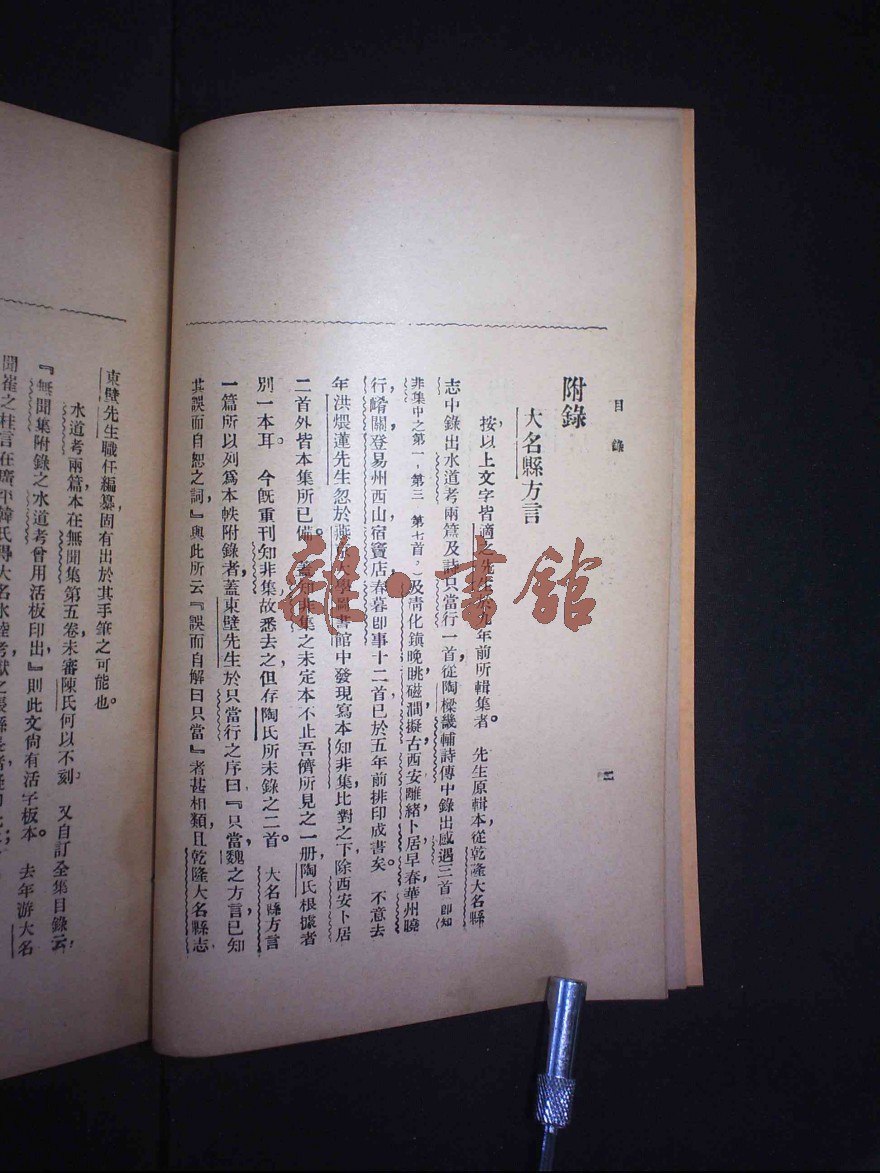 目錄
二
附錄
大名縣方言
按,以上文字皆適之先生於九年前所輯集者。 先生原輯本從乾隆大名縣
志中錄出水道考兩篇及詩只當行一首,從陶樑畿輔詩傳中錄出感遇三首 卽知
非集中之第一,第三 第七首,)及清化鎮晚眺磁澗擬古西安離緒卜居早春華州曉
行崤關登易州西山宿竇店春暮卽事十二首已於五年前排印成書矣。 不意去
年洪煨蓮先生忽於燕京大學圖書館中發現寫本知非集比對之下,除西安卜居
二首外皆本集所已備。蓋知非集之未定本不止吾儕所見之一册,陶氏根據者
別一本耳。 今旣重刊知非集故悉去之但存陶氏所未錄之二首。 大名縣方言
一篇所以列爲本帙附錄者,蓋東壁先生於只當行之序曰『只當,魏之方言,已知
其誤而自恕之詞』與此所云『誤而自解曰只當』者甚相類,且乾隆大名縣志
東壁先生職任編纂,固有出於其手筆之可能也。
水道考兩篇,本在無聞集第五卷未審陳氏何以不刻 又自訂全集目錄云,
『無聞集附錄之水道考曾用活板印出』則此文尙有活字板本。 去年游大名
聞崔之桂言在廣平韓氏得大名水陸考
龍·書館